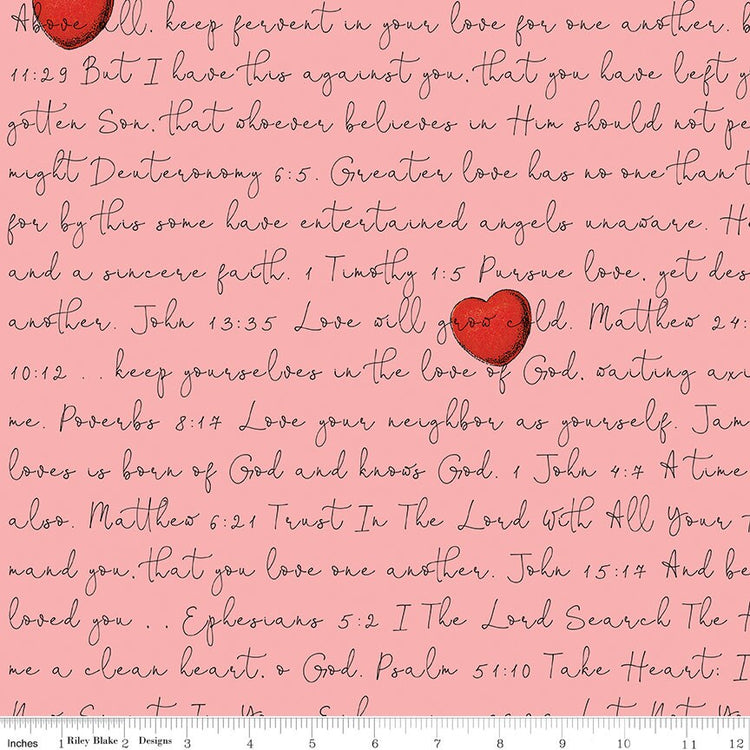 Above all, keep fervent in your love for one another.
11:29 But I have this against you, that you have left y
gotten Son, that whoever believes in Him should not pe
might Deuteronomy 6:5. Greater love has no one than t
for by this some have entertained angels unaware. He
and a sincere faith. 1 Timothy 1:5 Pursue love, yet des
another. John 13:35 Love will grow cold. Matthew 24:
10:12 .. keep yourselves in the love of God, waiting axi
me. Poverbs 8:17 Love your neighbor as yourself. Jam
loves is born of God and knows God. 1 John 4:7 A time
also. Matthew 6:21 Trust In The Lord With All Your
mand you, that you love one another. John 15:17 And be
loved you .. Ephesians 5:2 I The Lord Search The H
me a clean heart, o God. Psalm 51:10 Take Heart; I
Inches 1 Riley Blake 2 Designs 3 4 5 6 7 8 9 10 11 12